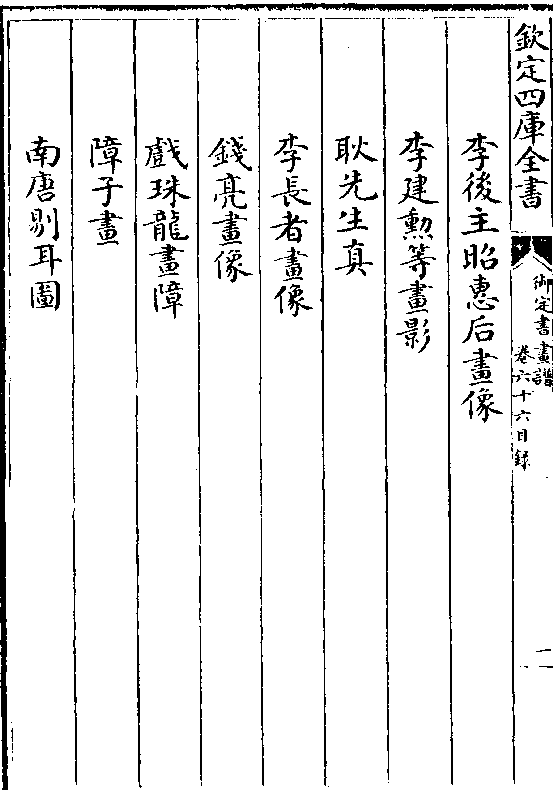 欽定四庫全書
御定書畫譜
卷六十六目錄
二
李後主昭惠后畫像
李建勲等畫影
耿先生真
李長者畫像
錢亮畫像
戲珠龍畫障
障子畫
南唐剔耳圖